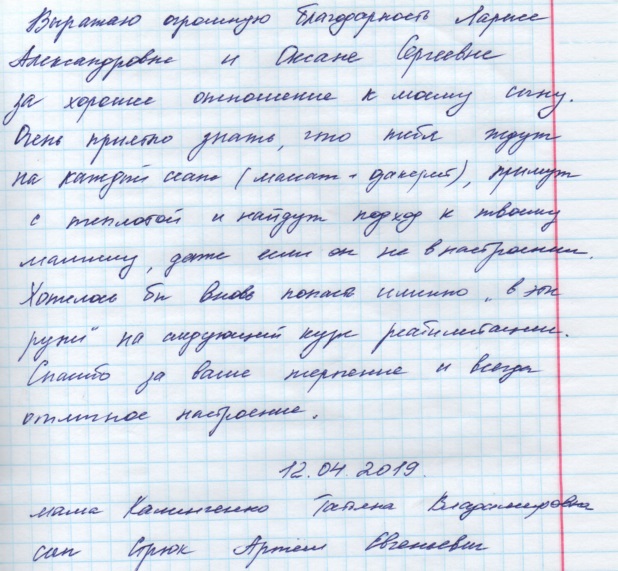 Выражаю огромную благодарность Ларисе
Александровне и Оксане Сергеевне
за хорошее отношение к моему сыну.
Очень приятно знать, что тебя ждут
на каждый сеанс (массаж + ), примут
с теплотой и найдут подход к твоему
малышу, даже если он не в настроении.
Хотелось бы вновь попасть именно „в эти
руки“ на следующий курс реабилитации.
Спасибо за ваше терпение и всегда
отличное настроение.
12.04.2019.
мама Татьяна Владимировна
сын Стрюк Артём Евгеньевич